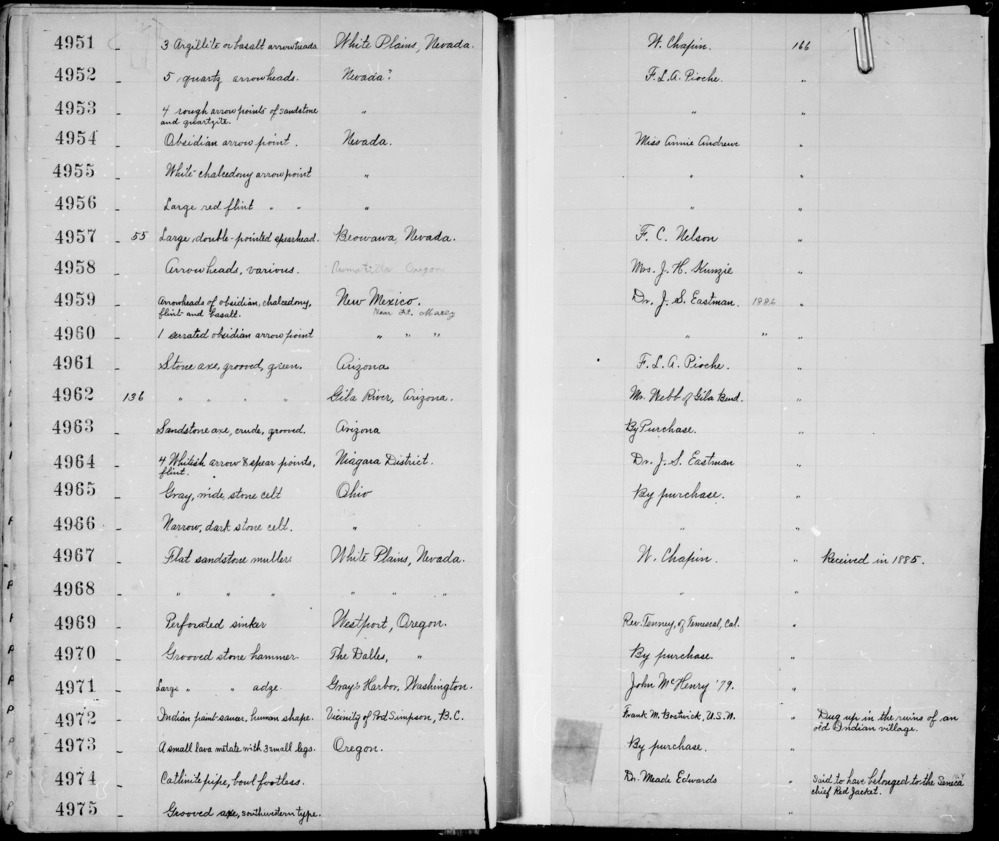 4951 3 Argillite or basalt arrowheads White Plains, Nevada. W. Chapin. 166
4952 5 quartz arrowheads. Nevada? F. L. A. Pioche. "
4953 4 rough arrow points of sandstone " " "
and quartzite.
4954 Obsidian arrow point. Nevada. Miss Annie Andrews "
4955 White chalcedony arrow point " " "
4956 Large red flint " " " " "
4957 55 Large double-pointed spearhead. Beowawa, Nevada. F. C. Nelson "
4958 Arrowheads, various. Oregon Mrs. J. H. Kunzie "
4959 Arrowheads of obsidian, chalcedony, New Mexico. Dr. J. S. Eastman 1886 "
flint and basalt. Near Ft.
4960 1 serrated obsidian arrow point " " " " " "
4961 Stone axe, grooved, green. Arizona F. L. A. Pioche. "
4962 136 " " " " Gila River, Arizona. Mr. Webb of Gila Bend. "
4963 Sandstone axe, crude, grooved. Arizona By Purchase. "
4964 4 Whitish arrow & spear points, Niagara District. Dr. J. S. Eastman "
flint.
4965 Gray, wide, stone celt Ohio By purchase. "
4966 Narrow, dark stone celt. " " "
4967 Flat sandstone muller White Plains, Nevada. W. Chapin. " Received in 1885.
4968 " " " " " " " "
4969 Perforated sinker Westport, Oregon. Rev. Tenney, of Temescal, Cal. "
4970 Grooved stone hammer The Dalles, " By purchase. "
4971 Large " " adze. Gray's Harbor, Washington. John McHenry '79. "
4972 Indian paint-saucer, human shape. Vicinity of Port Simpson, B.C. Frank M. Bostwick, U.S.N. " Dug up in the ruins of an
old Indian village.
4973 A small lava metate with 3 small legs. Oregon. By purchase. "
4974 Catlinite pipe, bowl footless. Dr. Meade Edwards " Said to have belonged to the Seneca
chief Red Jacket.
4975 Grooved axe, southwestern type.